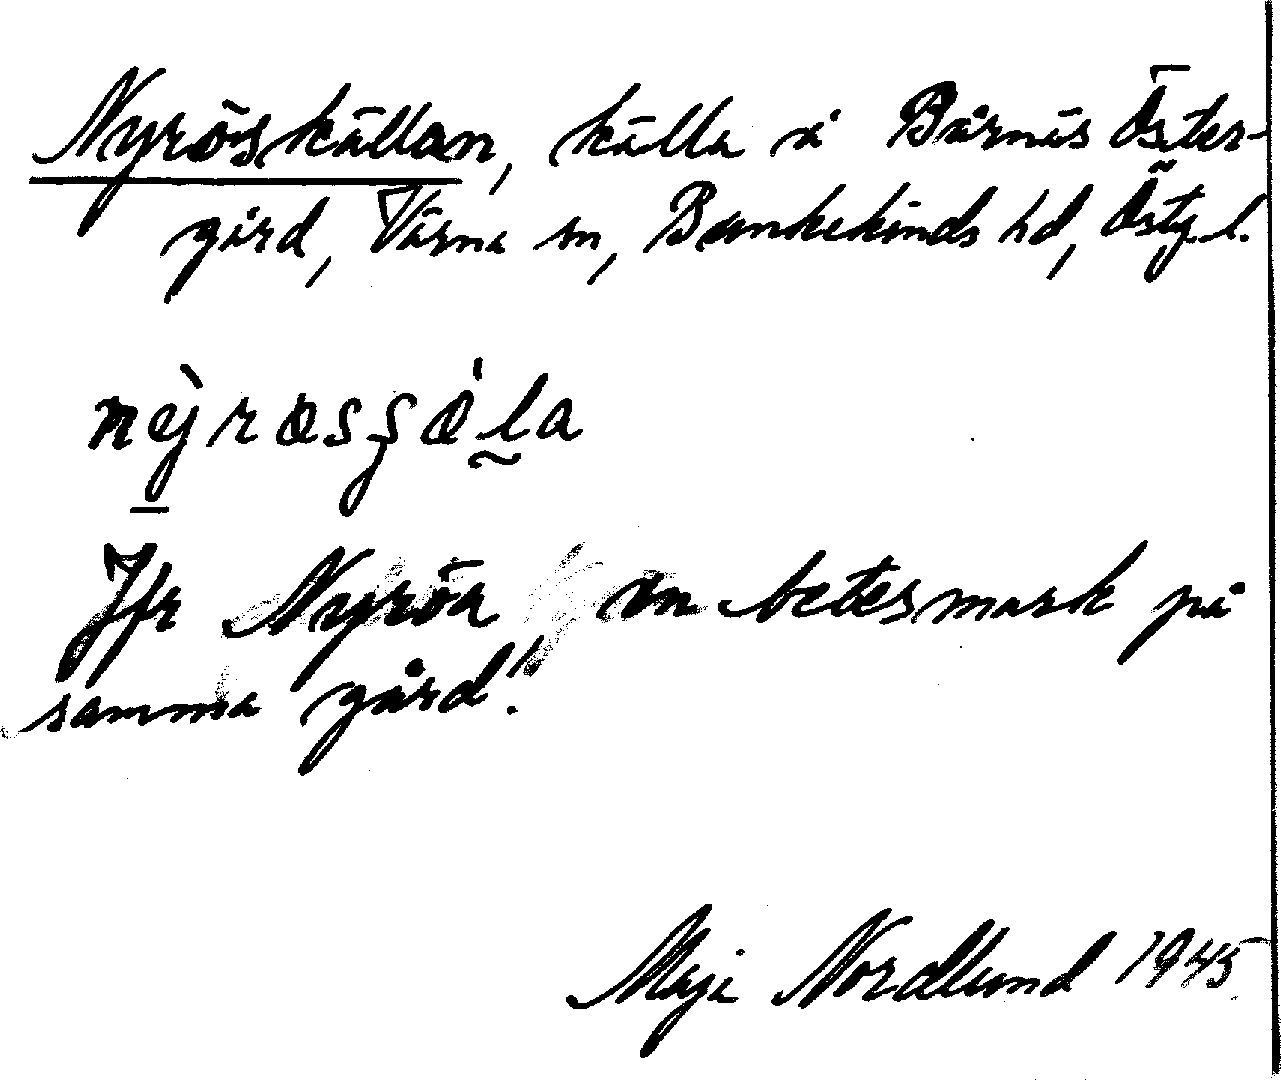 Nyröskällan, källa å Bårnäs Öster-
gård, Värna sn, Bankekinds hd, Östg. l.
Jfr Nyröa, en betesmark på
samma gård!
Maja Nordlund 1945